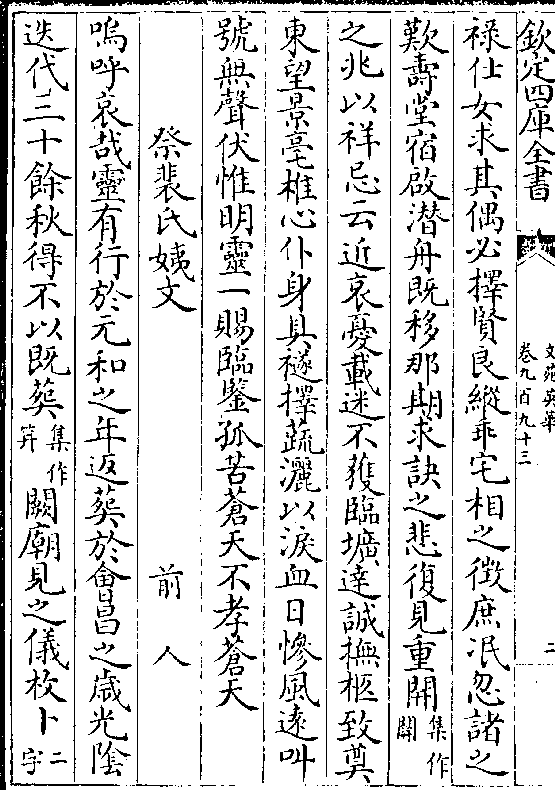 欽定四庫全書
文苑英華
卷九百九十三
二
祿仕女求其偶必擇賢良縱乖宅相之徴庶泯忽諸之
歎壽堂宿啟潜舟既移那期求訣之悲復見重開集作關
之兆以祥忌云近哀憂載迷不獲臨壙達誠撫柩致奠
東望景亳椎心仆身具禭擇蔬灑以淚血日慘風遠叫
號無聲伏惟明靈一賜臨鑒孤苦蒼天不孝蒼天
祭裴氏姨文
前人
嗚呼哀哉靈有行於元和之年返葬於㑹昌之歲光陰
迭代三十餘秋得不以既葬集作筓闕廟見之儀枚卜二字